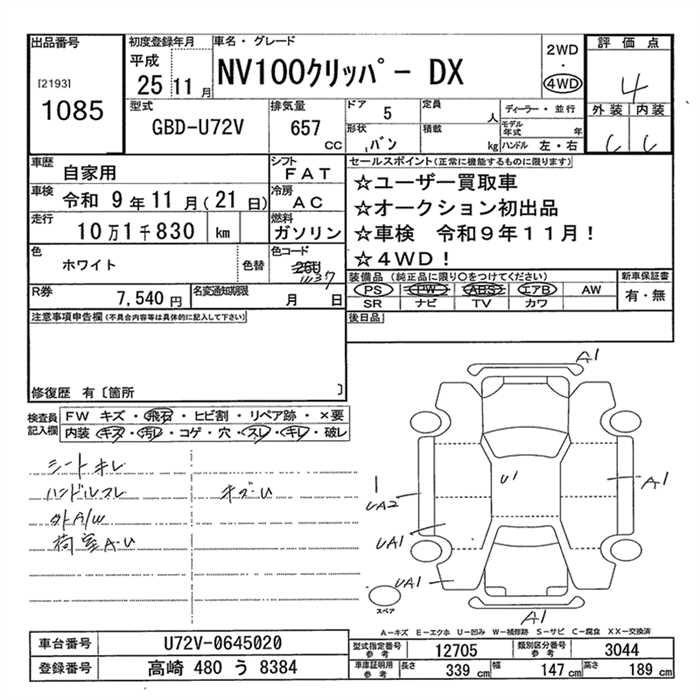 出品番号
[2193]
1085
初度登録年月
平成
25 11 月
車名・グレード
NV100クリッパー DX
2WD
・
4WD
評価点
4
外装 内装
C C
型式
GBD-U72V
排気量
657
CC
ドア 5
形状 バン
定員 人
積載 kg
ディーラー・並行
モデル年式 年
ハンドル 左・右
車歴 自家用
車検 令和 9 年 11 月 ( 21 日)
走行 10万1千830 km
色 ホワイト 色替
シフト FAT
冷房 AC
燃料 ガソリン
色コード
26U
R券 7,540 円
名変通知期限 月 日
セールスポイント(正常に機能するものに限ります)
☆ユーザー買取車
☆オークション初出品
☆車検 令和9年11月！
☆4WD！
装備品 (純正品に限り○をつけてください)
PS PW ABS エアB AW
SR ナビ TV カワ
新車保証書
有・無
後日品
注意事項申告欄(不具合内容等は具体的に記入して下さい)
修復歴 有〔箇所 〕
検査員記入欄
FW キズ・飛石・ヒビ割・リペア跡・×要
内装 キズ・汚レ・コゲ・穴・スレ・キレ・破レ
シートキレ
ハンドルスレ キズU
外A/W
荷室A・U
A1
U1
A1
UA2
UA1
UA1
A1
スペア
A－キズ E－エクボ U－凹み W－補修跡 S－サビ C－腐食 XX－交換済
車台番号 U72V-0645020
登録番号 高崎 480 う 8384
型式指定番号 参考 12705
類別区分番号 参考 3044
車庫証明用 参考
長さ 339 cm
幅 147 cm
高さ 189 cm